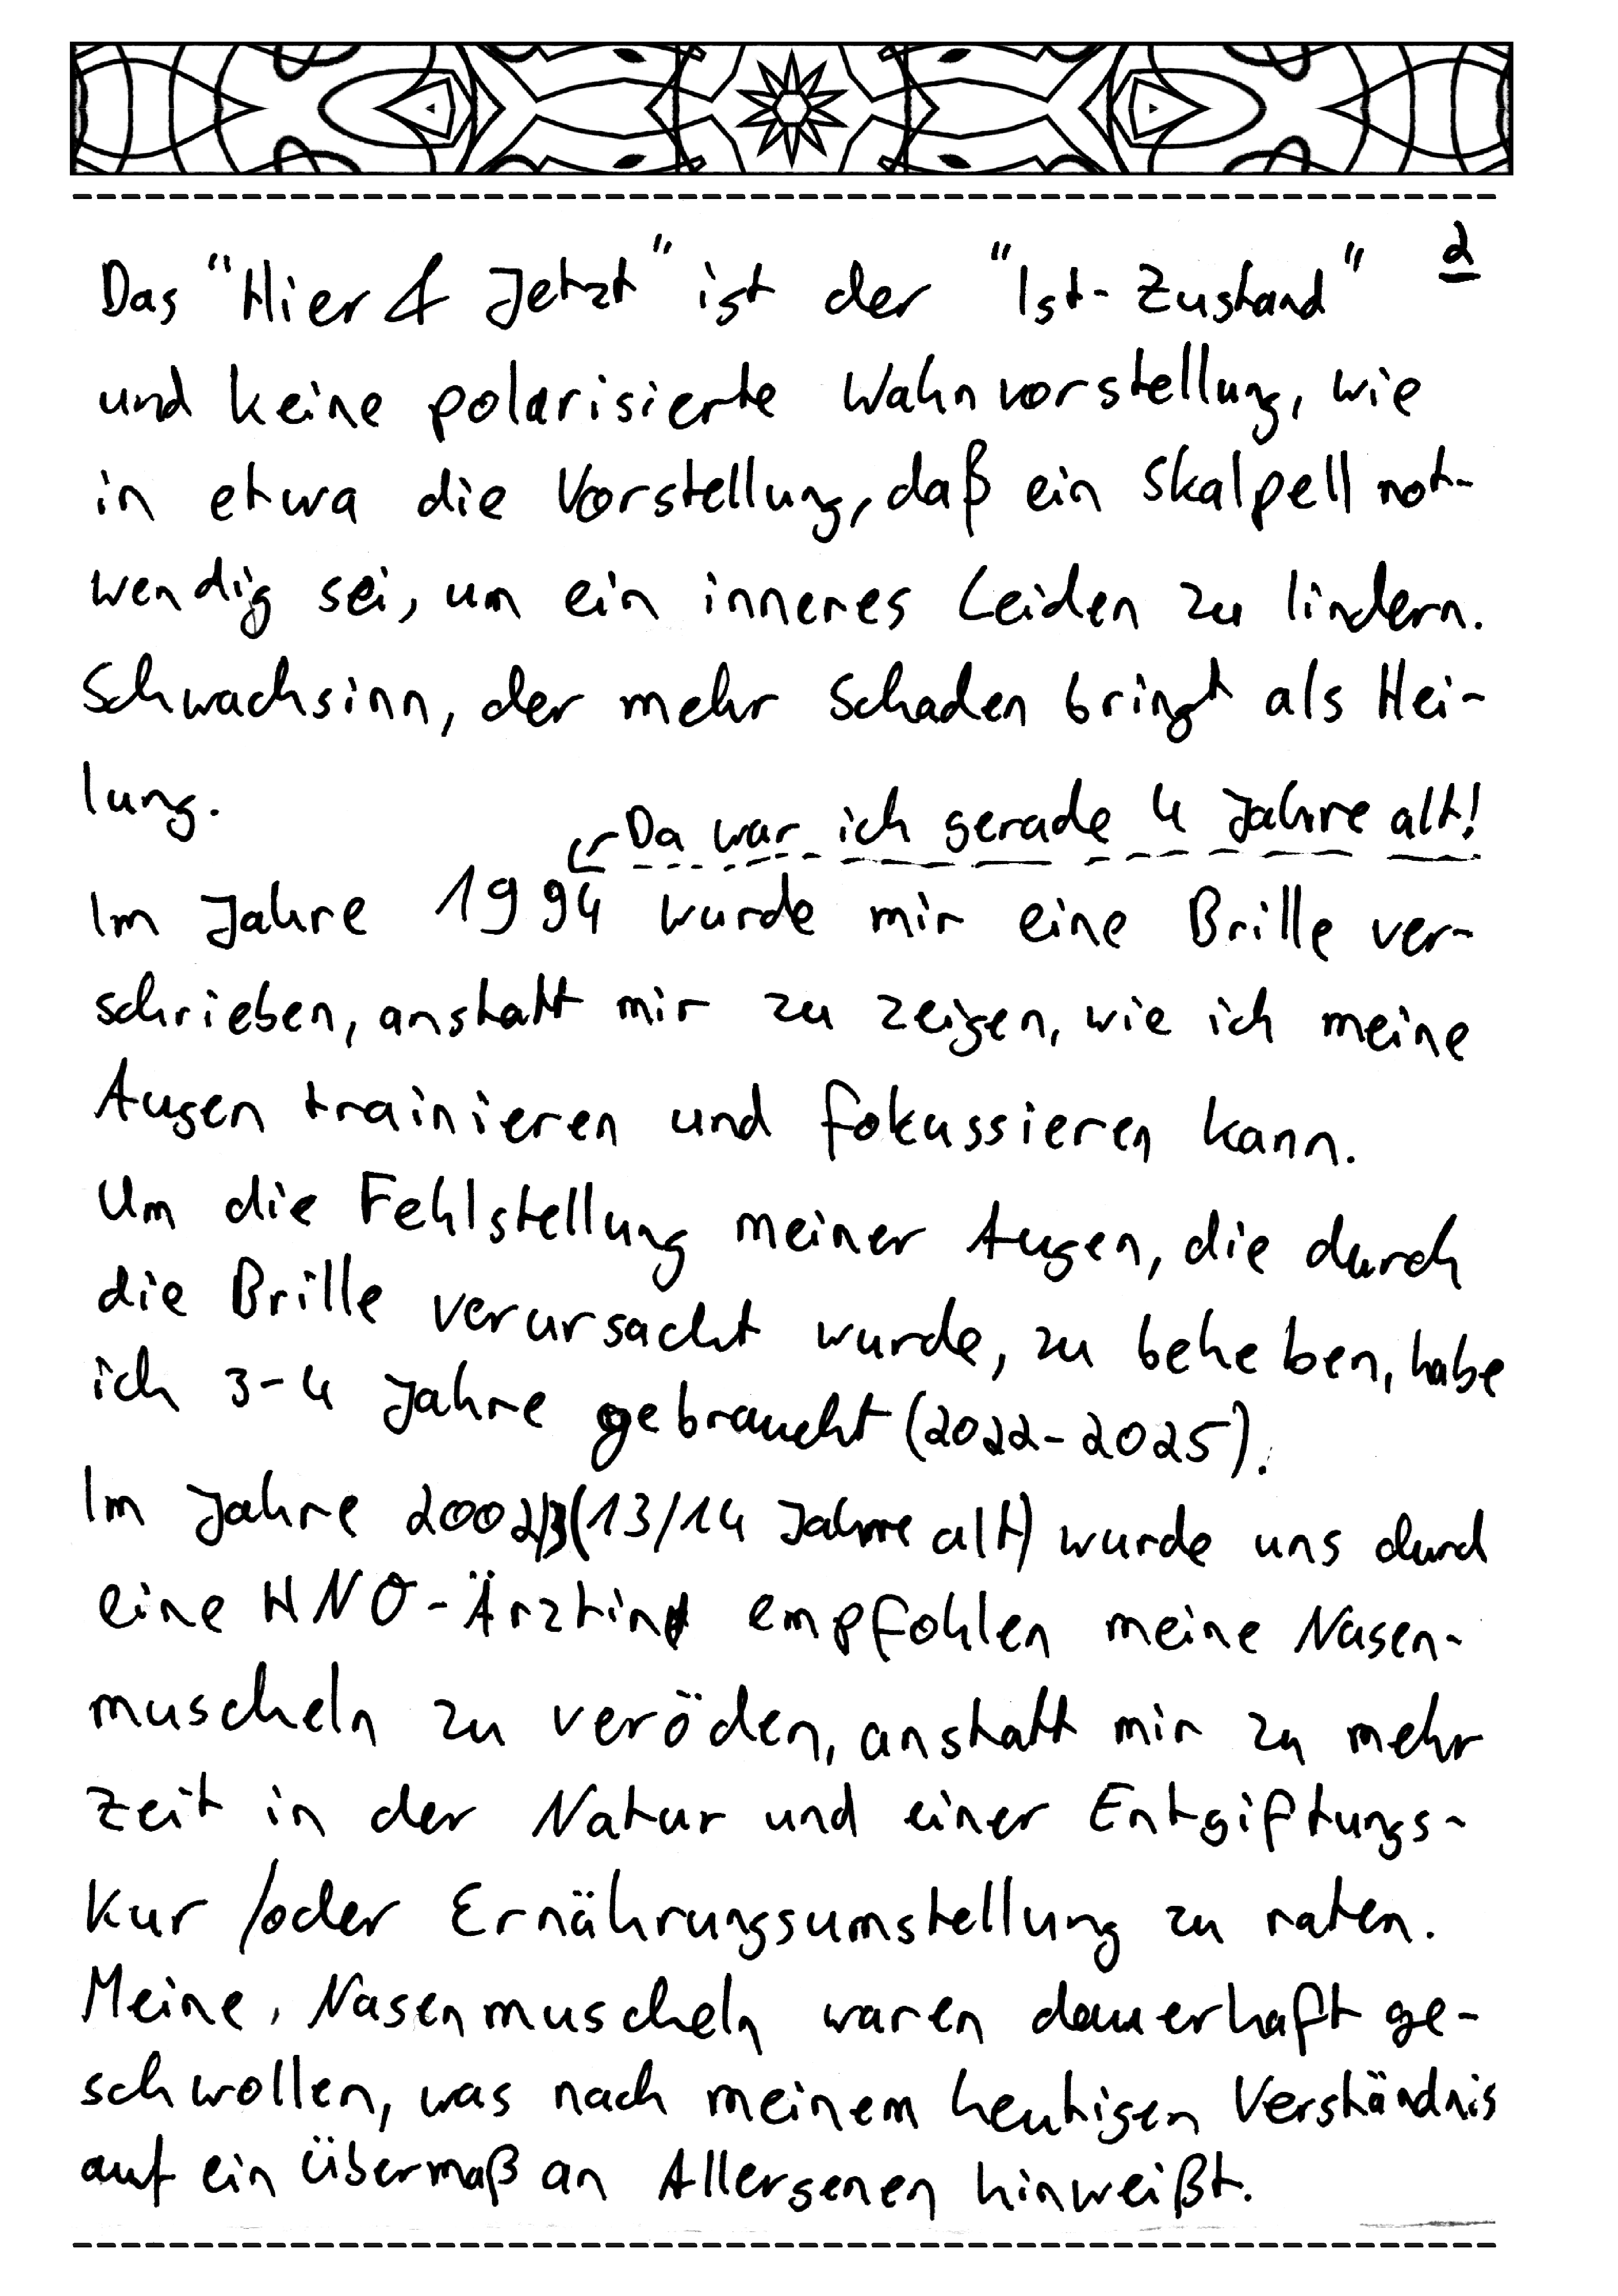 2
Das "Hier & Jetzt" ist der "Ist-Zustand"
und keine polarisierte Wahnvorstellung, wie
in etwa die Vorstellung, daß ein Skalpell not-
wendig sei, um ein inneres Leiden zu lindern.
Schwachsinn, der mehr Schaden bringt als Hei-
lung.
Da war ich gerade 4 Jahre alt!
Im Jahre 1994 wurde mir eine Brille ver-
schrieben, anstatt mir zu zeigen, wie ich meine
Augen trainieren und fokussieren kann.
Um die Fehlstellung meiner Augen, die durch
die Brille verursacht wurde, zu beheben, habe
ich 3-4 Jahre gebraucht (2022-2025).
Im Jahre 2002/3 (13/14 Jahre alt) wurde uns durch
eine HNO-Ärztin empfohlen meine Nasen-
muscheln zu veröden, anstatt mir zu mehr
Zeit in der Natur und einer Entgiftungs-
Kur /oder Ernährungsumstellung zu raten.
Meine, Nasenmuscheln waren dauerhaft ge-
schwollen, was nach meinem heutigen Verständnis
auf ein Übermaß an Allergenen hinweißt.